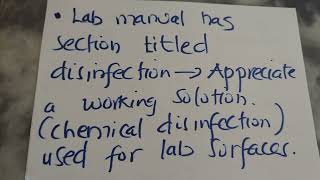 • Lab manual has
section titled
disinfection → Appreciate
a working solution.
(chemical disinfection)
used for lab surfaces.